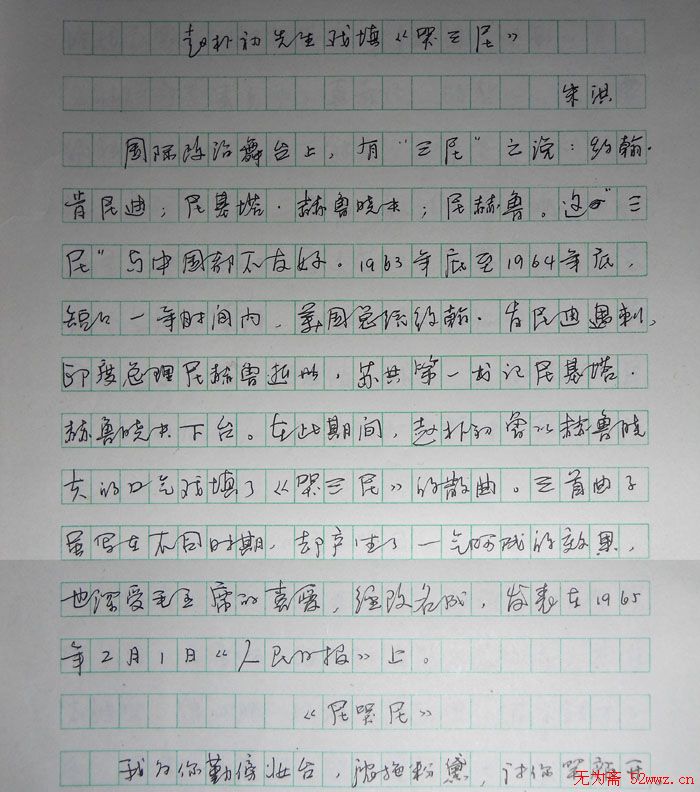 赵朴初先生戏填《哭三尼》
朱洪
国际政治舞台上，有“三尼”之说：约翰·
肯尼迪；尼基塔·赫鲁晓夫；尼赫鲁。这“三
尼”与中国都不友好。1963年底至1964年底，
短短一年时间内，美国总统约翰·肯尼迪遇刺，
印度总理尼赫鲁逝世，苏共第一书记尼基塔·
赫鲁晓夫下台。在此期间，赵朴初曾以赫鲁晓
夫的口气戏填了《哭三尼》的散曲。三首曲子
虽写在不同时期，却产生了一气呵成的效果，
也深受毛主席的喜爱，经改名成，发表在1965
年2月1日《人民日报》上。
《尼哭尼》
我为你勤傍妆台，浓施粉黛，讨你笑颜开
无为斋 52wwz.cn